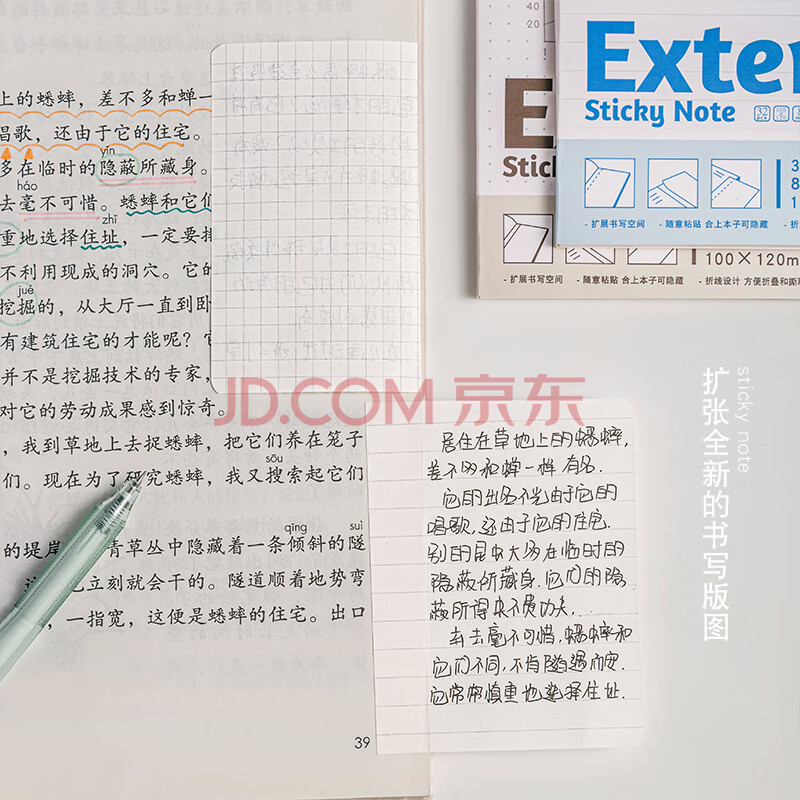 上的蟋蟀，差不多和蝉一
唱歌，还由于它的住宅。
yǐn
多在临时的隐蔽所藏身。
háo
去毫不可惜。蟋蟀和它们
zhǐ
重地选择住址，一定要排
不利用现成的洞穴。它的
jué
挖掘的，从大厅一直到卧
有建筑住宅的才能呢？
并不是挖掘技术的专家，
对它的劳动成果感到惊奇。
，我到草地上去捉蟋蟀，把它们养在笼子
sōu
们。现在为了研究蟋蟀，我又搜索起它们
qīng suì
的堤岸 青草丛中隐藏着一条倾斜的隧
也立刻就会干的。隧道顺着地势弯
，一指宽，这便是蟋蟀的住宅。出口
39
居住在草地上的蟋蟀，
差不多和蝉一样有名.
它的出名不光由于它的
唱歌,还由于它的住宅.
别的昆虫大多在临时的
隐蔽所藏身.它们的隐
蔽所得来不费功夫,
弃去毫不可惜,蟋蟀和
它们不同,不肯随遇而安.
它常常慎重地选择住址.
Exter
Sticky Note
- 扩展书写空间
- 随意粘贴 合上本子可隐藏
Stick
100×120m
- 扩展书写空间
- 随意粘贴 合上本子可隐藏
- 折线设计 方便折叠和撕
sticky note
扩张全新的书写版图
JD.COM 京东